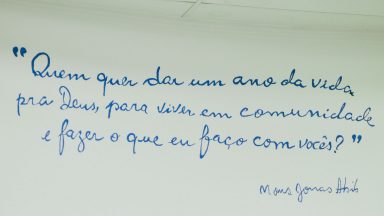 "Quem quer dar um ano da vida
pra Deus, para viver em comunidade
e fazer o que eu faço com vocês?"
Mons Jonas Abib